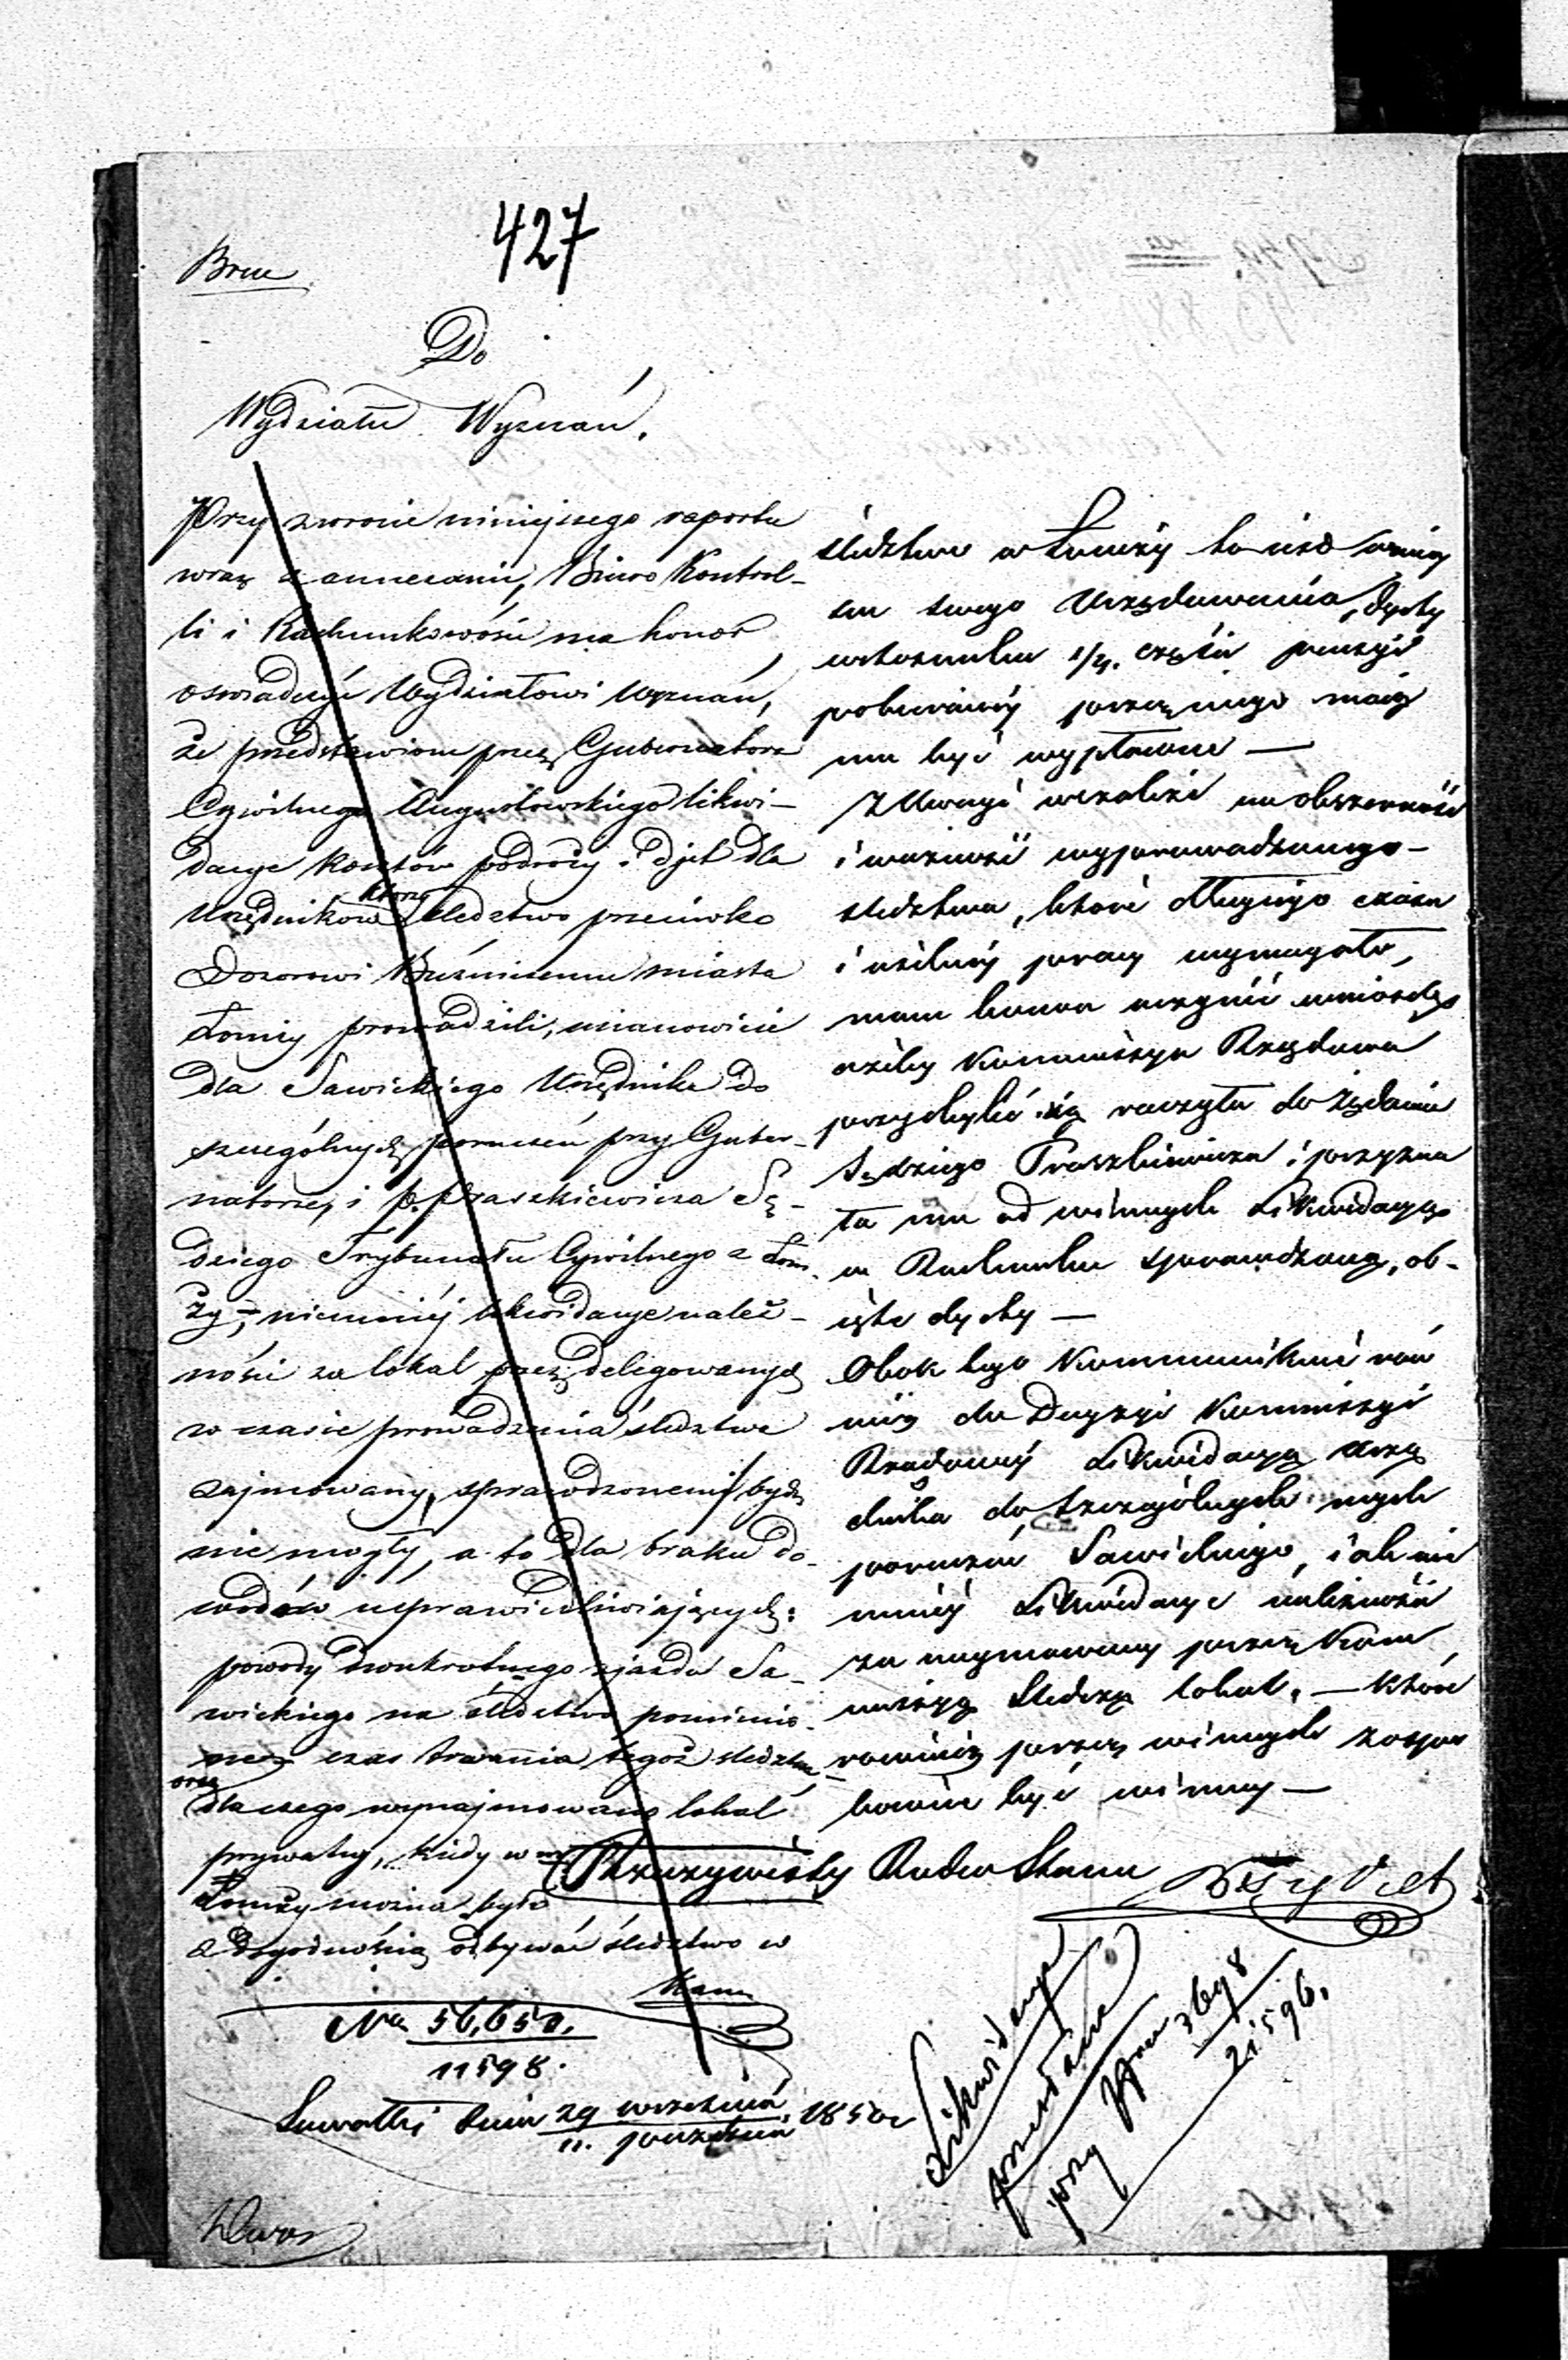 427
Do
Wydziału Wyznań.
Przy zwrocie niniejszego raportu
wraz z annexami, Biuro Kontrol-
li i Rachunkowości ma honor
oswiadczyć Wydziałowi Wyznań,
że przedstawione przez Gubernatora
Cywilnego Augustowskiego likwi-
dacye kosztów podróży i djet dla
Urzędników którzy śledztwo przeciwko
Dozorowi Bóżniczemu miasta
Łomży prowadzili, mianowicie
dla Sawickiego Urzędnika do
szczególnych poruczeń przy Guber-
natorze, i p. Praszkiewicza Sę-
dziego Trybunału Cywilnego z Łom-
ży, – niemniej likwidacye należ-
ności za lokal przez delegowanych
w czasie prowadzenia śledztwa
zajmowany, sprawdzonemi bydź
nie mogły, a to dla braku do-
wodów usprawiedliwiających:
powody dwukrotnego zjazdu Sa-
wickiego na śledztwo
czas trwania tegoż śledztwa
oraz
dlaczego wynajmowano lokal
prywatny, kiedy w
Łomży można było
z dogodnością odbywać śledztwo w
śledztwo w Łomży to jest w miej
scu swego Urzędowania, dyety
w stosunku części pensyi
pobieranej przez niego mają
mu być wypłacone —
Z Uwagi wszakże na obszerność
i ważność wyprowadzonego
śledztwa, które długiego czasu
i usilnej pracy wymagało,
mam honor uczynić wniosek
ażeby Kommissya Rządowa
przychylić się raczyła do żądania
Sędziego Praszkiewicza i przyzna
ła mu od winnych Likwidacyą
w Rachunku sprawdzoną, ob-
jęte dyety —
Obok tego Kommunikuję rów
nież do Decyzyi Kommissyi
Rządowej Likwidacyą Urzę
dnika do Szczególnych
poruczeń Sawickiego, jako nie
mniej Likwidacye należności
za najmowany przez Kom
missyą Śledczą lokal, — które
również przez winnych zaspo
kojone być winny —
Rzeczywisty Radca Stanu
No 56,650.
11598.
Suwałki dnia 29 września
11. października 1850 r
Likwidacye
przesłane
przy